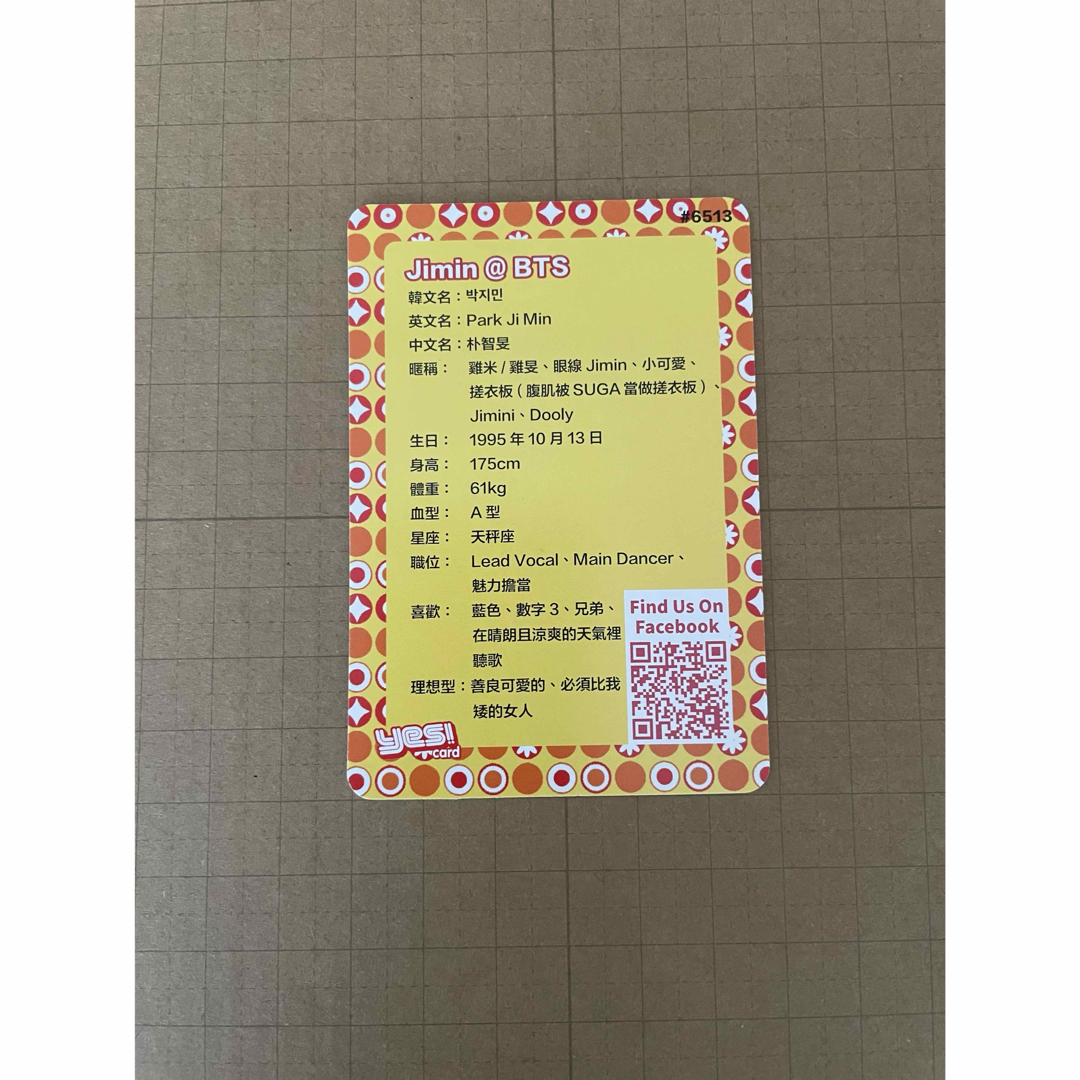 #6513
Jimin @ BTS
韓文名：박지민
英文名：Park Ji Min
中文名：朴智旻
暱稱： 雞米 / 雞旻、眼線 Jimin、小可愛、
搓衣板 ( 腹肌被 SUGA 當做搓衣板 ) 、
Jimini、Dooly
生日： 1995 年 10 月 13 日
身高： 175cm
體重： 61kg
血型： A 型
星座： 天秤座
職位： Lead Vocal、Main Dancer、
魅力擔當
喜歡： 藍色、數字 3、兄弟、
在晴朗且涼爽的天氣裡
聽歌
理想型：善良可愛的、必須比我
矮的女人
Find Us On
Facebook
yes!
card